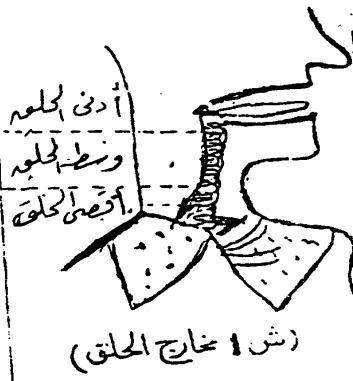 أدنى الحلق
وسط الحلق
أقصى الحلق
(ش ١ مخارج الحلق)